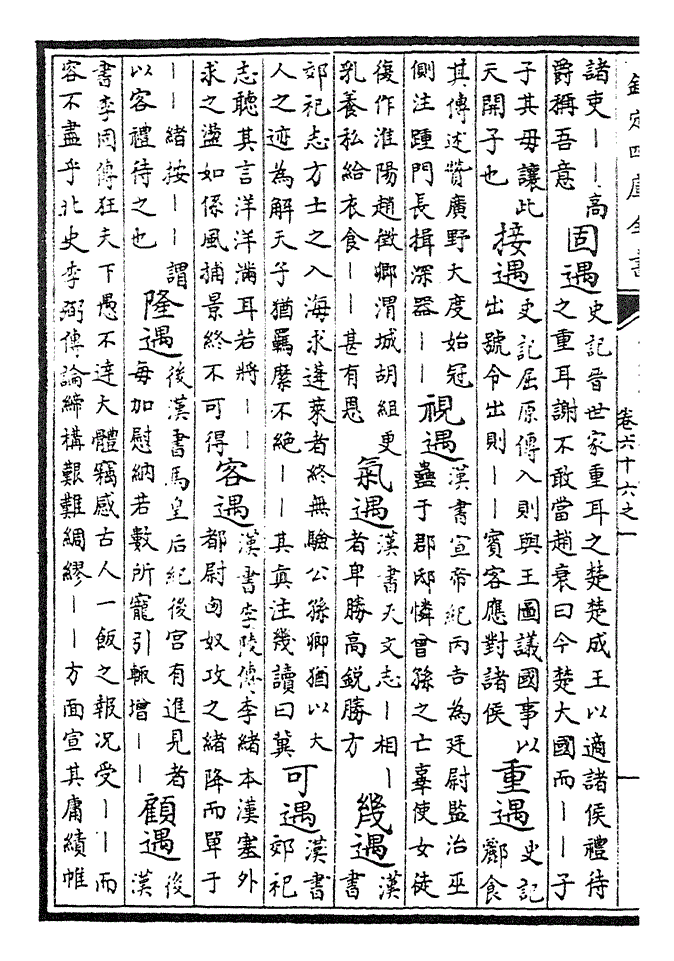 欽定四庫全書
卷六十六之一
諸吏｜｜高
爵稱吾意
固遇
史記晉世家重耳之楚楚成王以適諸侯禮待
之重耳謝不敢當趙衰曰今楚大國而｜｜子
子其毋讓此
天開子也
接遇
史記屈原傳入則與王圖議國事以
出號令出則｜｜賓客應對諸侯
重遇
史記
酈食
其傳述贊廣野大度始冠
側注踵門長揖深器｜｜
視遇
漢書宣帝紀丙吉為廷尉監治巫
蠱于郡邸憐曾孫之亡辜使女徒
復作淮陽趙徵卿渭城胡組更
乳養私給衣食｜｜甚有恩
氣遇
漢書天文志｜相｜
者卑勝高銳勝方
幾遇
漢
書
郊祀志方士之入海求蓬萊者終無驗公孫卿猶以大
人之迹為解天子猶羈縻不絕｜｜其真注幾讀曰冀
可遇
漢書
郊祀
志聽其言洋洋滿耳若將｜｜
求之盪如係風捕景終不可得
客遇
漢書李陵傳李緒本漢塞外
都尉匈奴攻之緒降而單于
｜｜緒按｜｜謂
以客禮待之也
隆遇
後漢書馬皇后紀後宮有進見者
每加慰納若數所寵引輒增｜｜
顧遇
後
漢
書李固傳狂夫下愚不達大體竊感古人一飯之報況受｜｜而
容不盡乎北史李弼傳論締構艱難綢繆｜｜方面宣其庸績帷